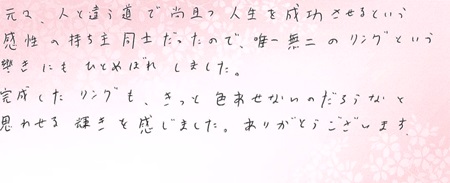 元々、人と違う道で尚且つ人生を成功させるという
感性の持ち主同士だったので、唯一無二のリングという
響きにもひとめぼれしました。
完成したリングも、きっと色あせないのだろうなと
思わせる輝きを感じました。ありがとうございます